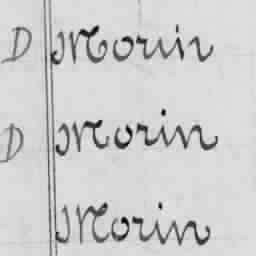 D Morin
D Morin
Morin